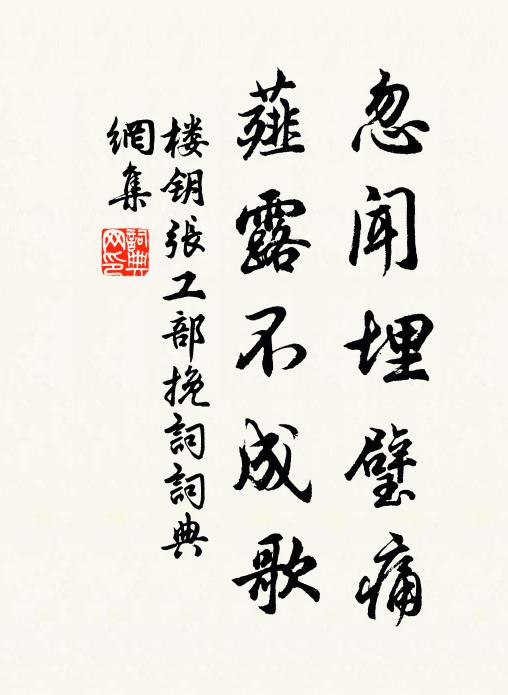 忽闻埋璧痛
薤露不成歌
楼钥张工部挽词词典
網集
詞典网印